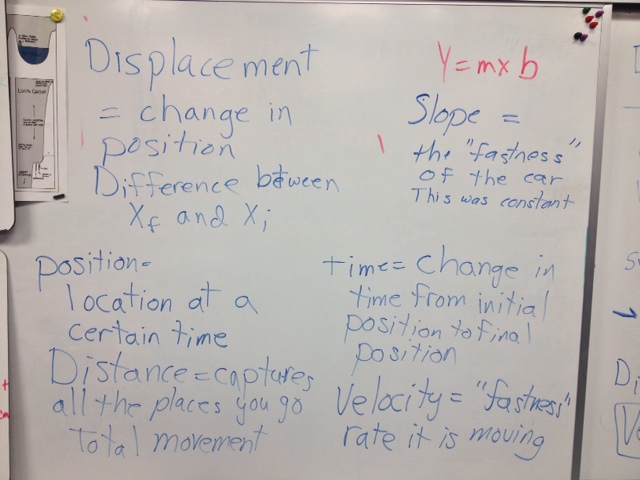 Displacement
= change in
position
Difference between
Xf and Xi
Y = mx b
Slope =
the "fastness"
of the car
This was constant
position=
location at a
certain time
Distance = captures
all the places you go
total movement
time = change in
time from initial
position to final
position
Velocity = "fastness"
rate it is moving